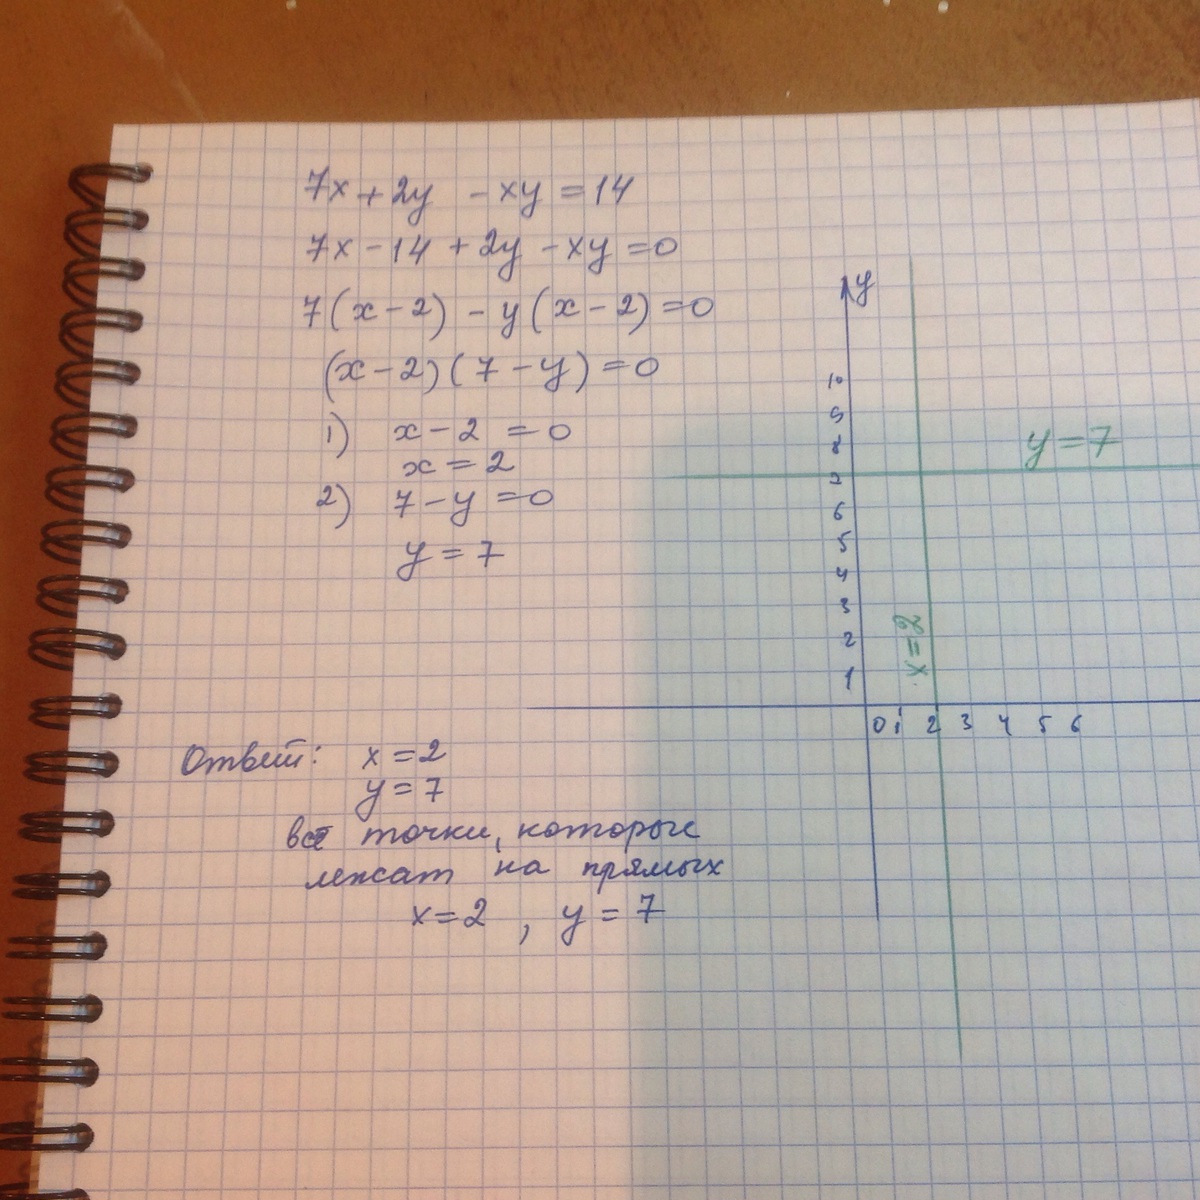 7x + 2y - xy = 14
7x - 14 + 2y - xy = 0
7(x - 2) - y(x - 2) = 0
(x - 2)(7 - y) = 0
1) x - 2 = 0
x = 2
2) 7 - y = 0
y = 7
y
10
9
8
7
6
5
4
3
2
1
0 1 2 3 4 5 6
y = 7
x = 2
Ответ: x = 2
y = 7
все точки, которые
лежат на прямых
x = 2 , y = 7